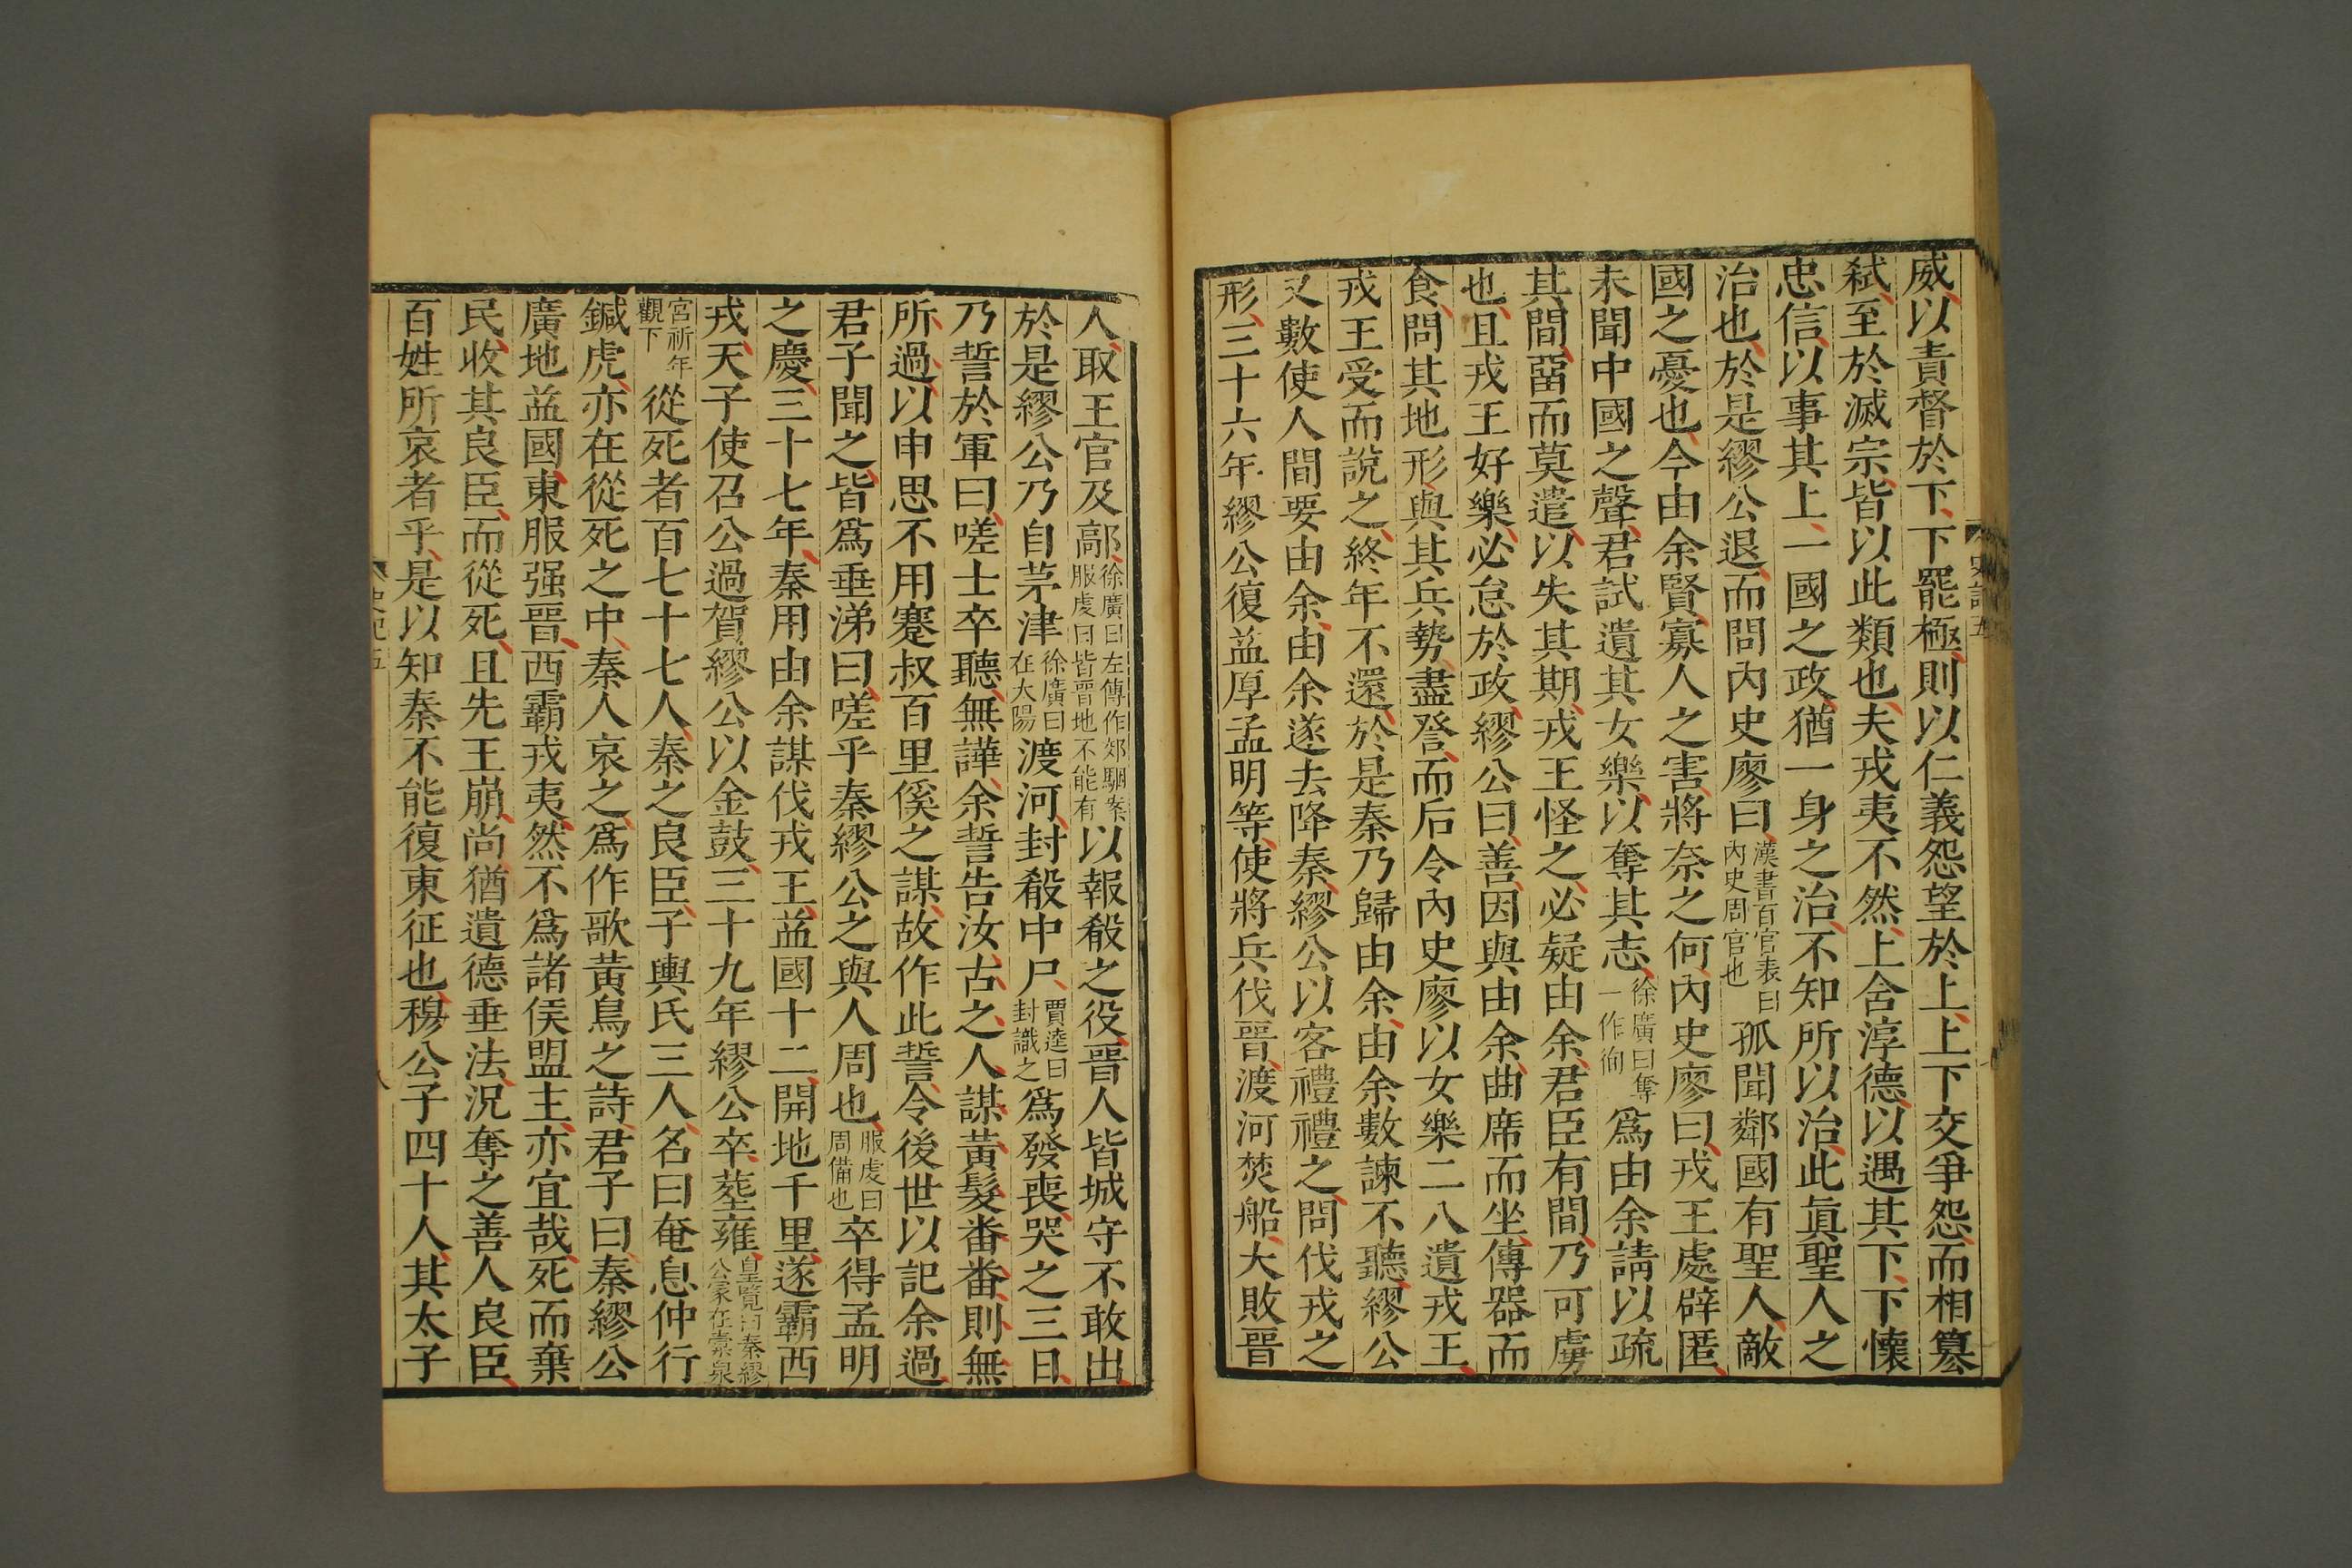 威以責督於下下罷極則以仁義怨望於上上下交爭怨而相篡
弒至於滅宗皆以此類也夫戎夷不然上含淳德以遇其下下懷
忠信以事其上一國之政猶一身之治不知所以治此眞聖人之
治也於是繆公退而問內史廖曰漢書百官表曰內史周官也孤聞鄰國有聖人敵
國之憂也今由余賢寡人之害將奈之何內史廖曰戎王處辟匿
未聞中國之聲君試遺其女樂以奪其志徐廣曰奪一作徇爲由余請以疏
其間畱而莫遣以失其期戎王怪之必疑由余君臣有間乃可虜
也且戎王好樂必怠於政繆公曰善因與由余曲席而坐傳器而
食問其地形與其兵勢盡詧而后令內史廖以女樂二八遺戎王
戎王受而說之終年不還於是秦乃歸由余由余數諫不聽繆公
又數使人間要由余由余遂去降秦繆公以客禮禮之問伐戎之
形三十六年繆公復益厚孟明等使將兵伐晉渡河焚船大敗晉
史記五
人取王官及鄗徐廣曰左傳作郊駰案服虔曰皆晉地不能有以報殽之役晉人皆城守不敢出
於是繆公乃自茅津徐廣曰在大陽渡河封殽中尸賈逵曰封識之爲發喪哭之三日
乃誓於軍曰嗟士卒聽無譁余誓告汝古之人謀黃髮番番則無
所過以申思不用蹇叔百里傒之謀故作此誓令後世以記余過
君子聞之皆爲垂涕曰嗟乎秦繆公之與人周也服虔曰周備也卒得孟明
之慶三十七年秦用由余謀伐戎王益國十二開地千里遂霸西
戎天子使召公過賀繆公以金鼓三十九年繆公卒葬雍皇覽曰秦繆公冢在橐泉
宮祈年觀下從死者百七十七人秦之良臣子輿氏三人名曰奄息仲行
鍼虎亦在從死之中秦人哀之爲作歌黃鳥之詩君子曰秦繆公
廣地益國東服强晉西霸戎夷然不爲諸侯盟主亦宜哉死而棄
民收其良臣而從死且先王崩尚猶遺德垂法況奪之善人良臣
百姓所哀者乎是以知秦不能復東征也穆公子四十人其太子
史記五